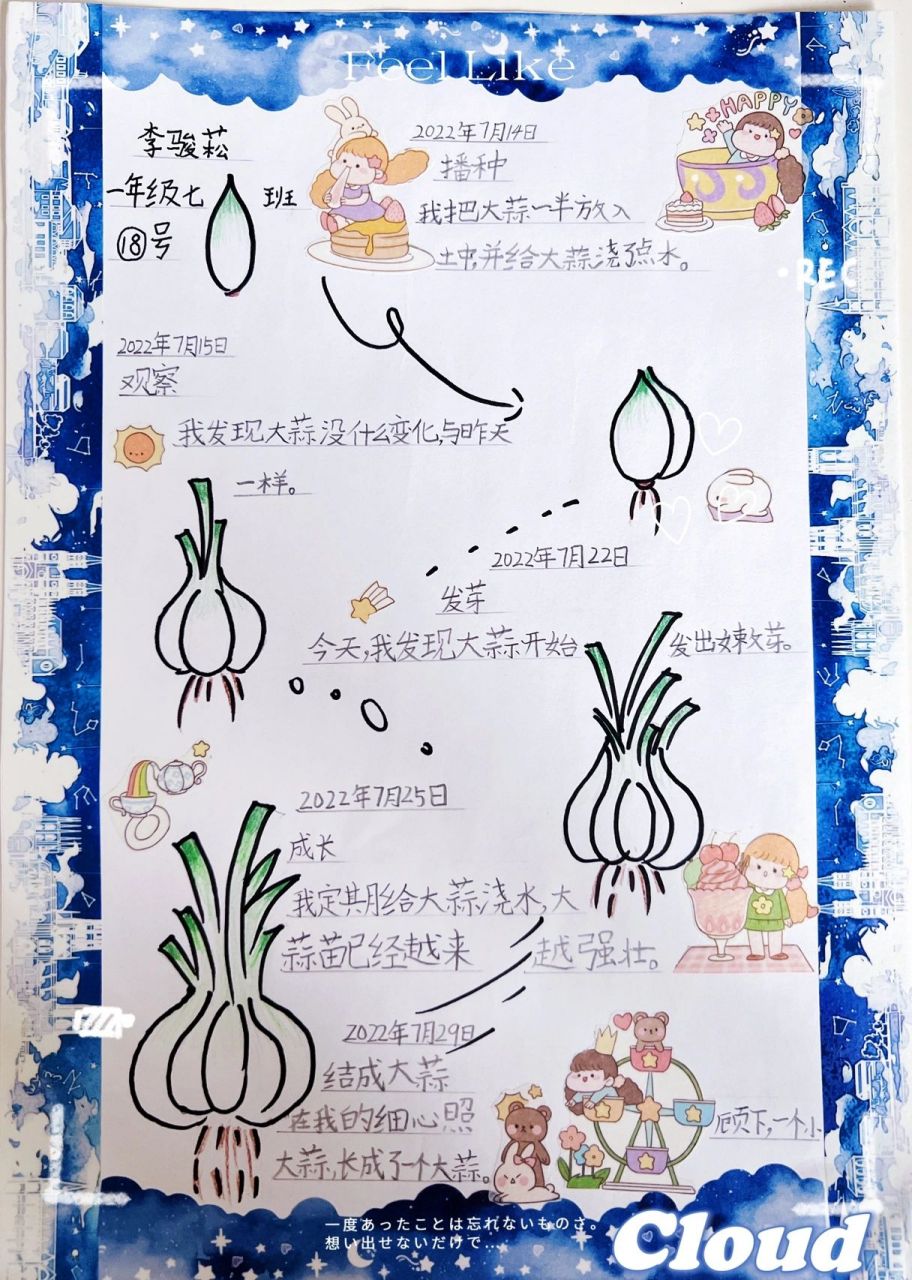 Feel Like
李骏菘
一年级七 班
⑱号
2022年7月14日
播种
HAPPY
我把大蒜一半放入
土中,并给大蒜浇了点水。
REC
2022年7月15日
观察
我发现大蒜没什么变化,与昨天
一样。
2022年7月22日
发芽
今天,我发现大蒜开始 发出嫩芽。
2022年7月25日
成长
我定期给大蒜浇水,大
蒜苗已经越来 越强壮。
2022年7月29日
结成大蒜
在我的细心照 顾下,一个小
大蒜,长成了一个大蒜。
一度あったことは忘れないものさ。
想い出せないだけで...
Cloud